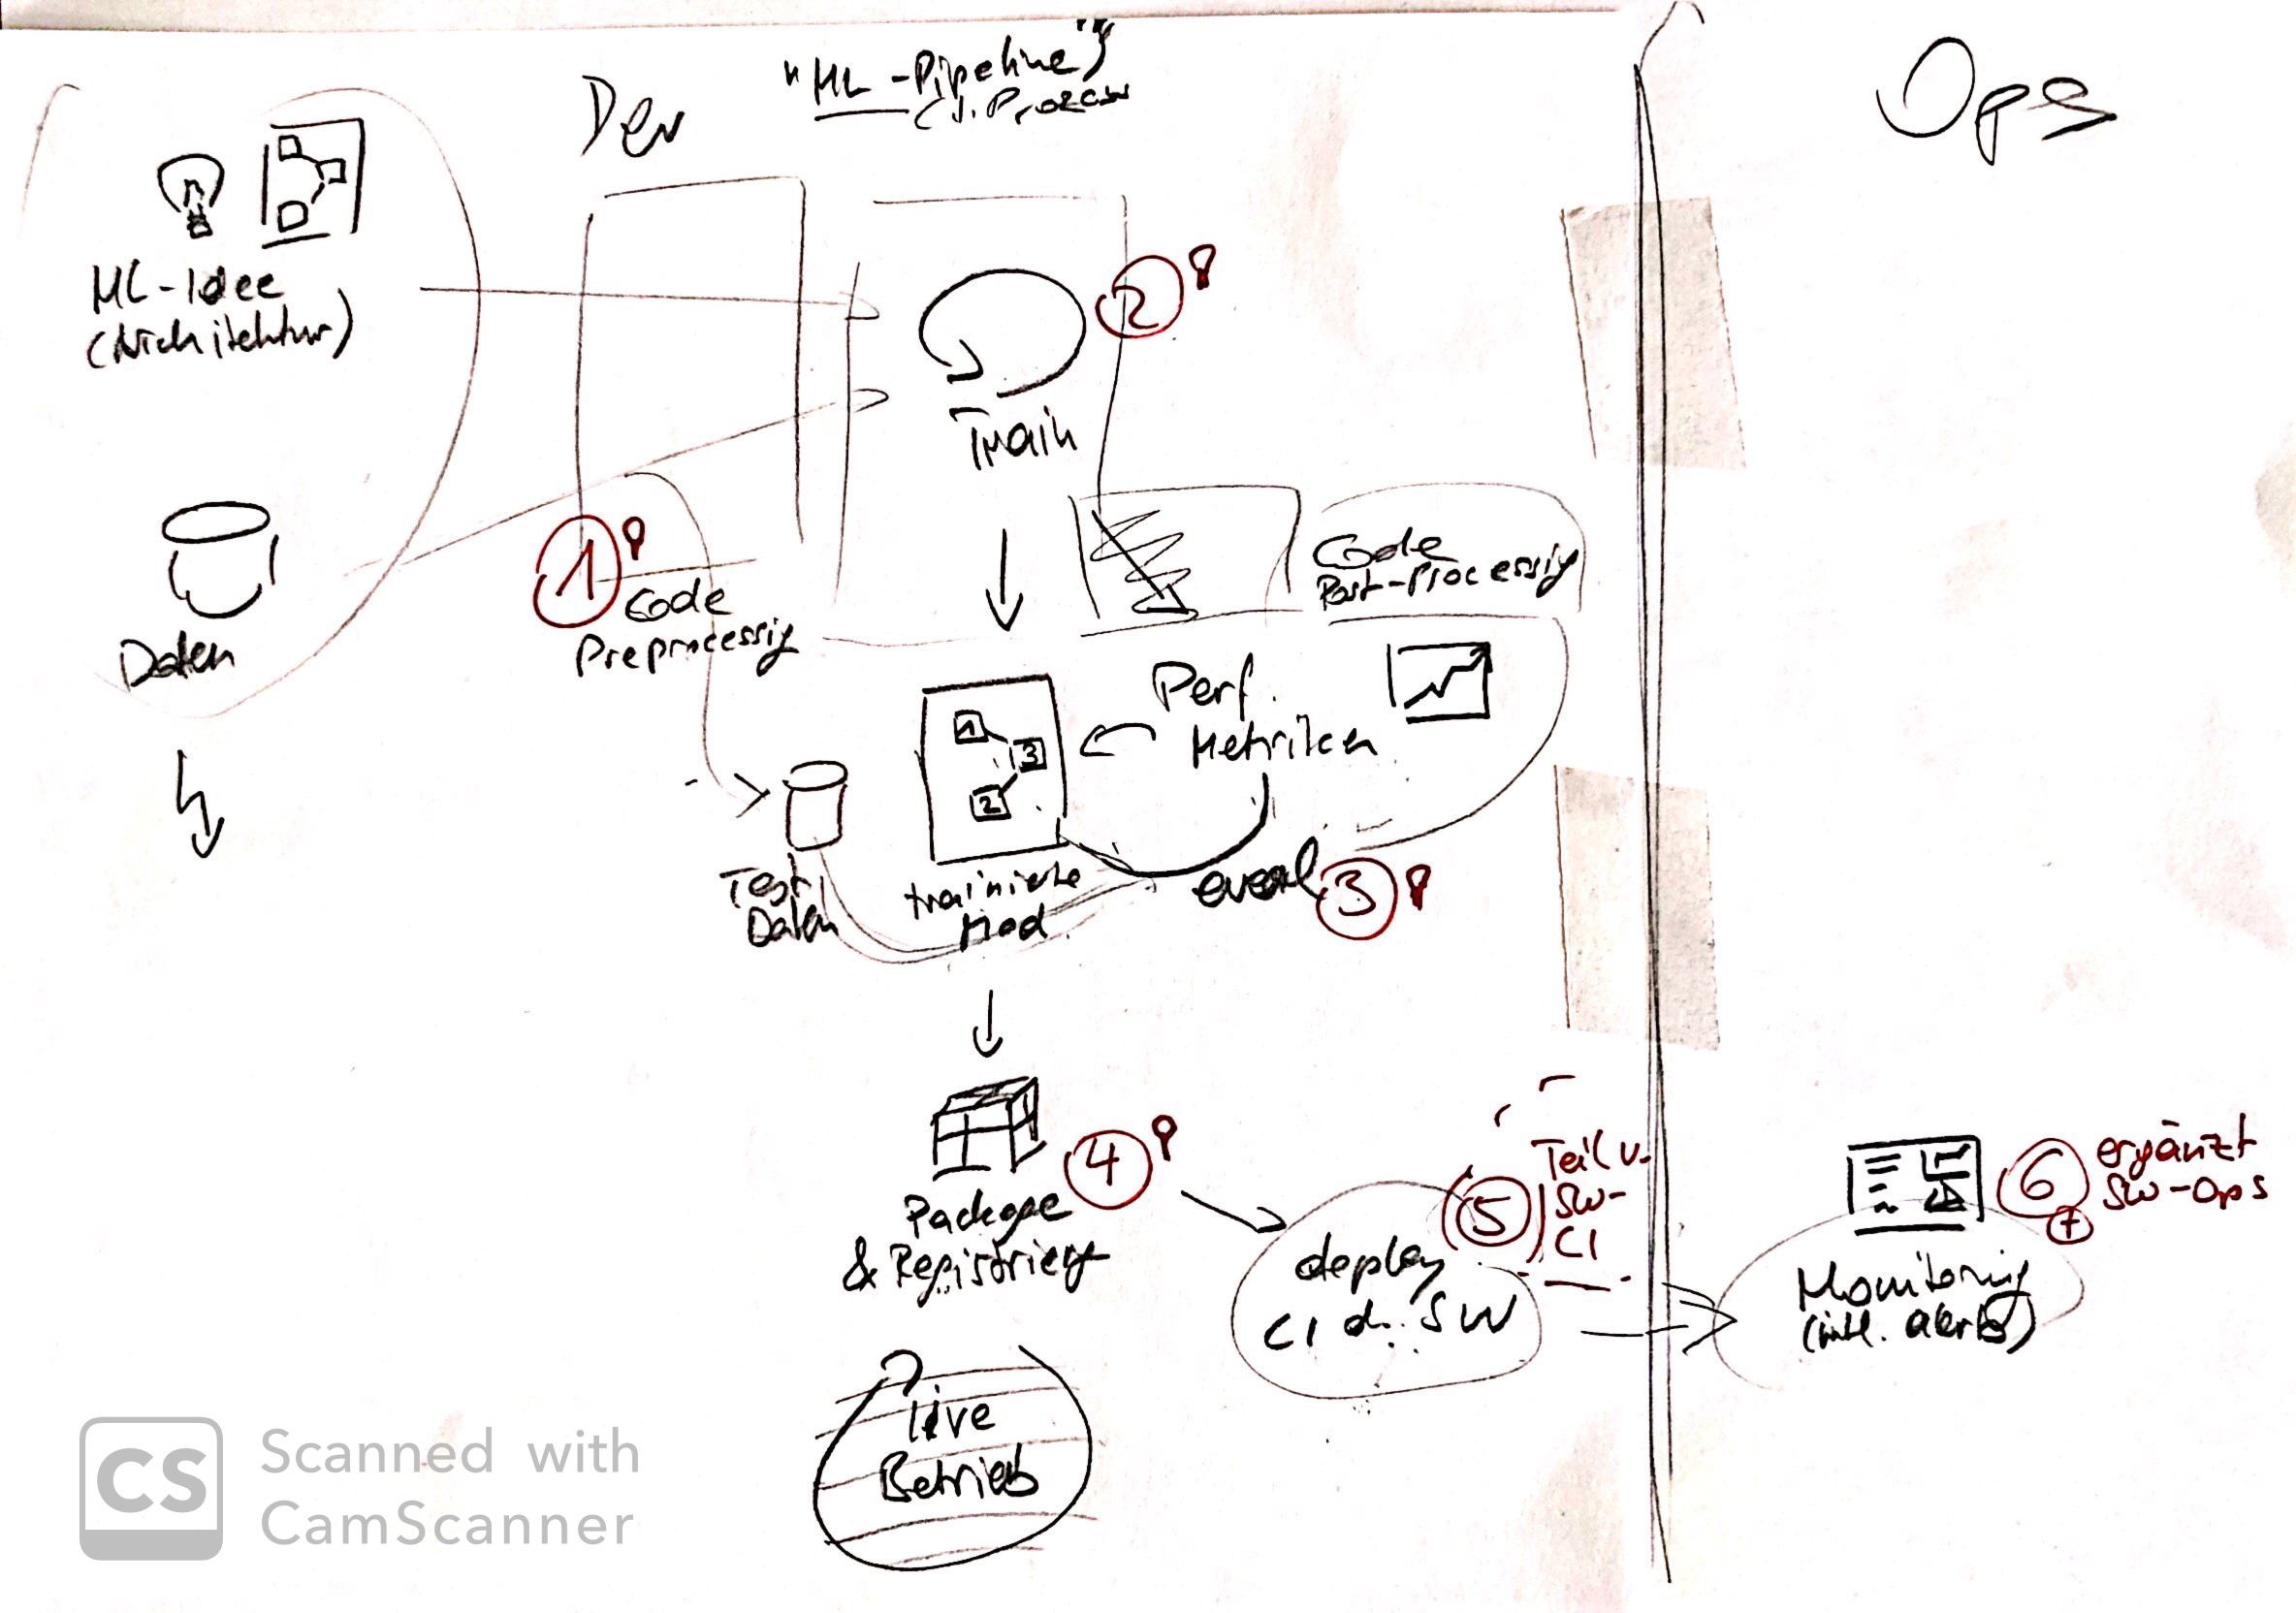 Dev
"ML-Pipeline"
Ops
ML-Idee
(Architektur)
2
Train
Daten
1
Code
Preprocessig
Code
Post-Processig
Perf.
Metriken
1
3
2
Test
Daten
trainierte
Mod.
eval
3
4
Package
& Registrierg
5
Teil v.
SW-
CI
deploy
CI d. SW
6
+
ergänzt
SW-Ops
Monitoring
(inkl. alerts)
live
Betrieb
CS
Scanned with
CamScanner